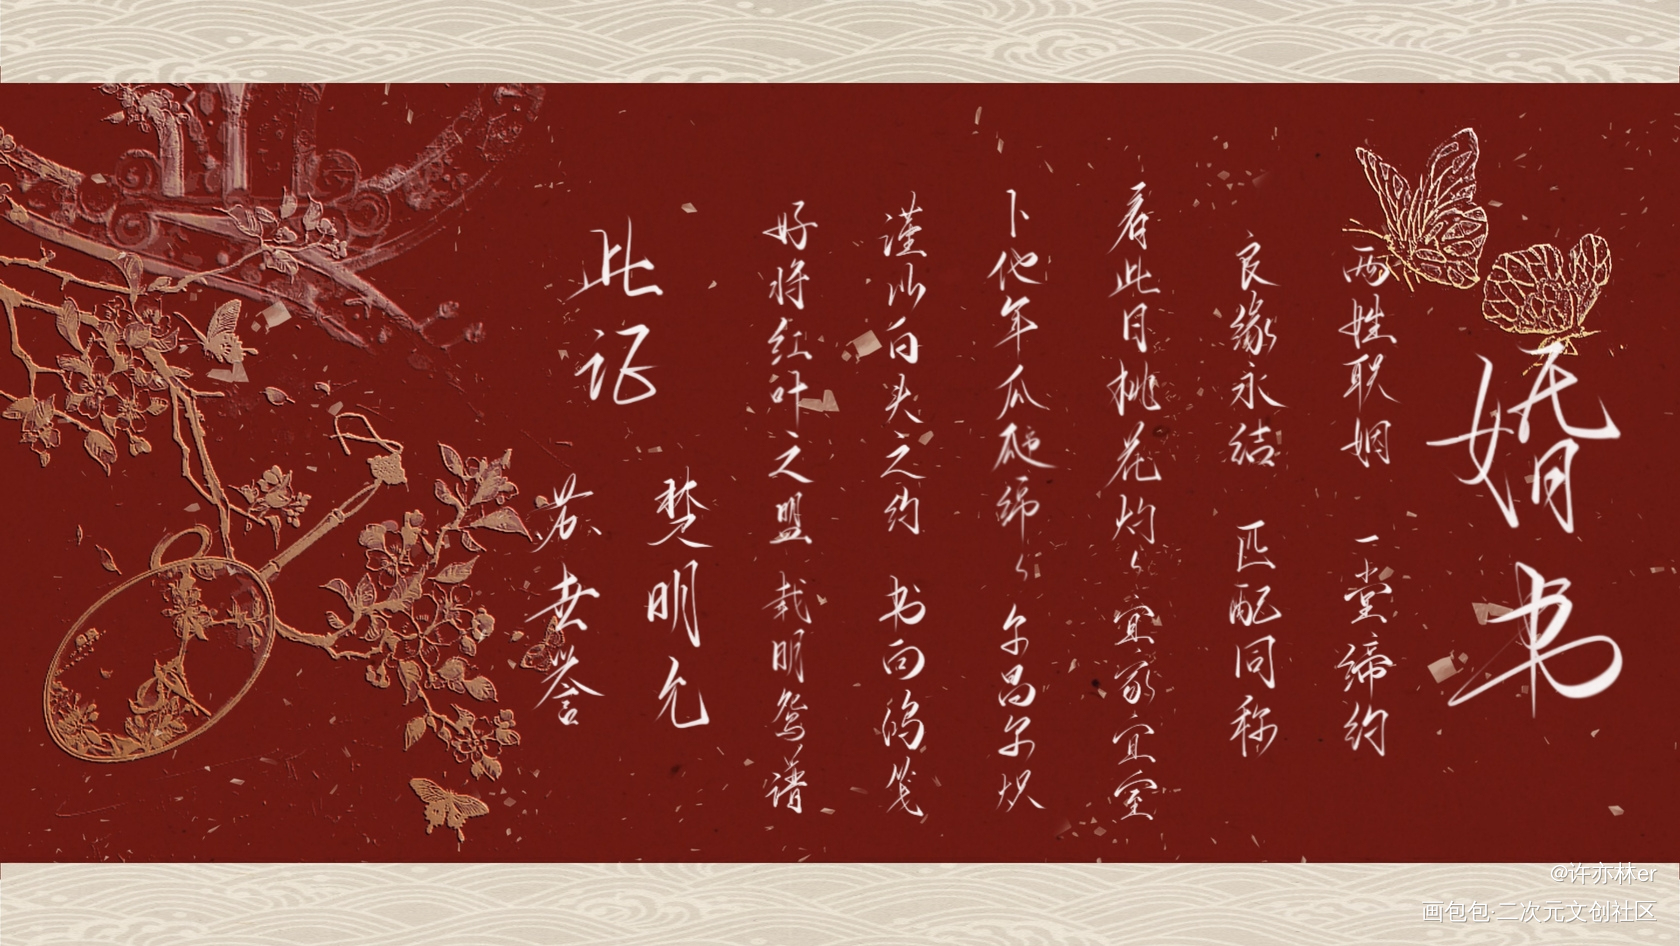 婚书
两姓联姻 一堂缔约
良缘永结 匹配同称
看此日桃花灼灼 宜室宜家
卜他年瓜瓞绵绵 尔昌尔炽
谨以白头之约 书向鸿笺
好将红叶之盟 载明鸳谱
此记
楚明允
苏世誉
@许亦林er
画包包·二次元文创社区